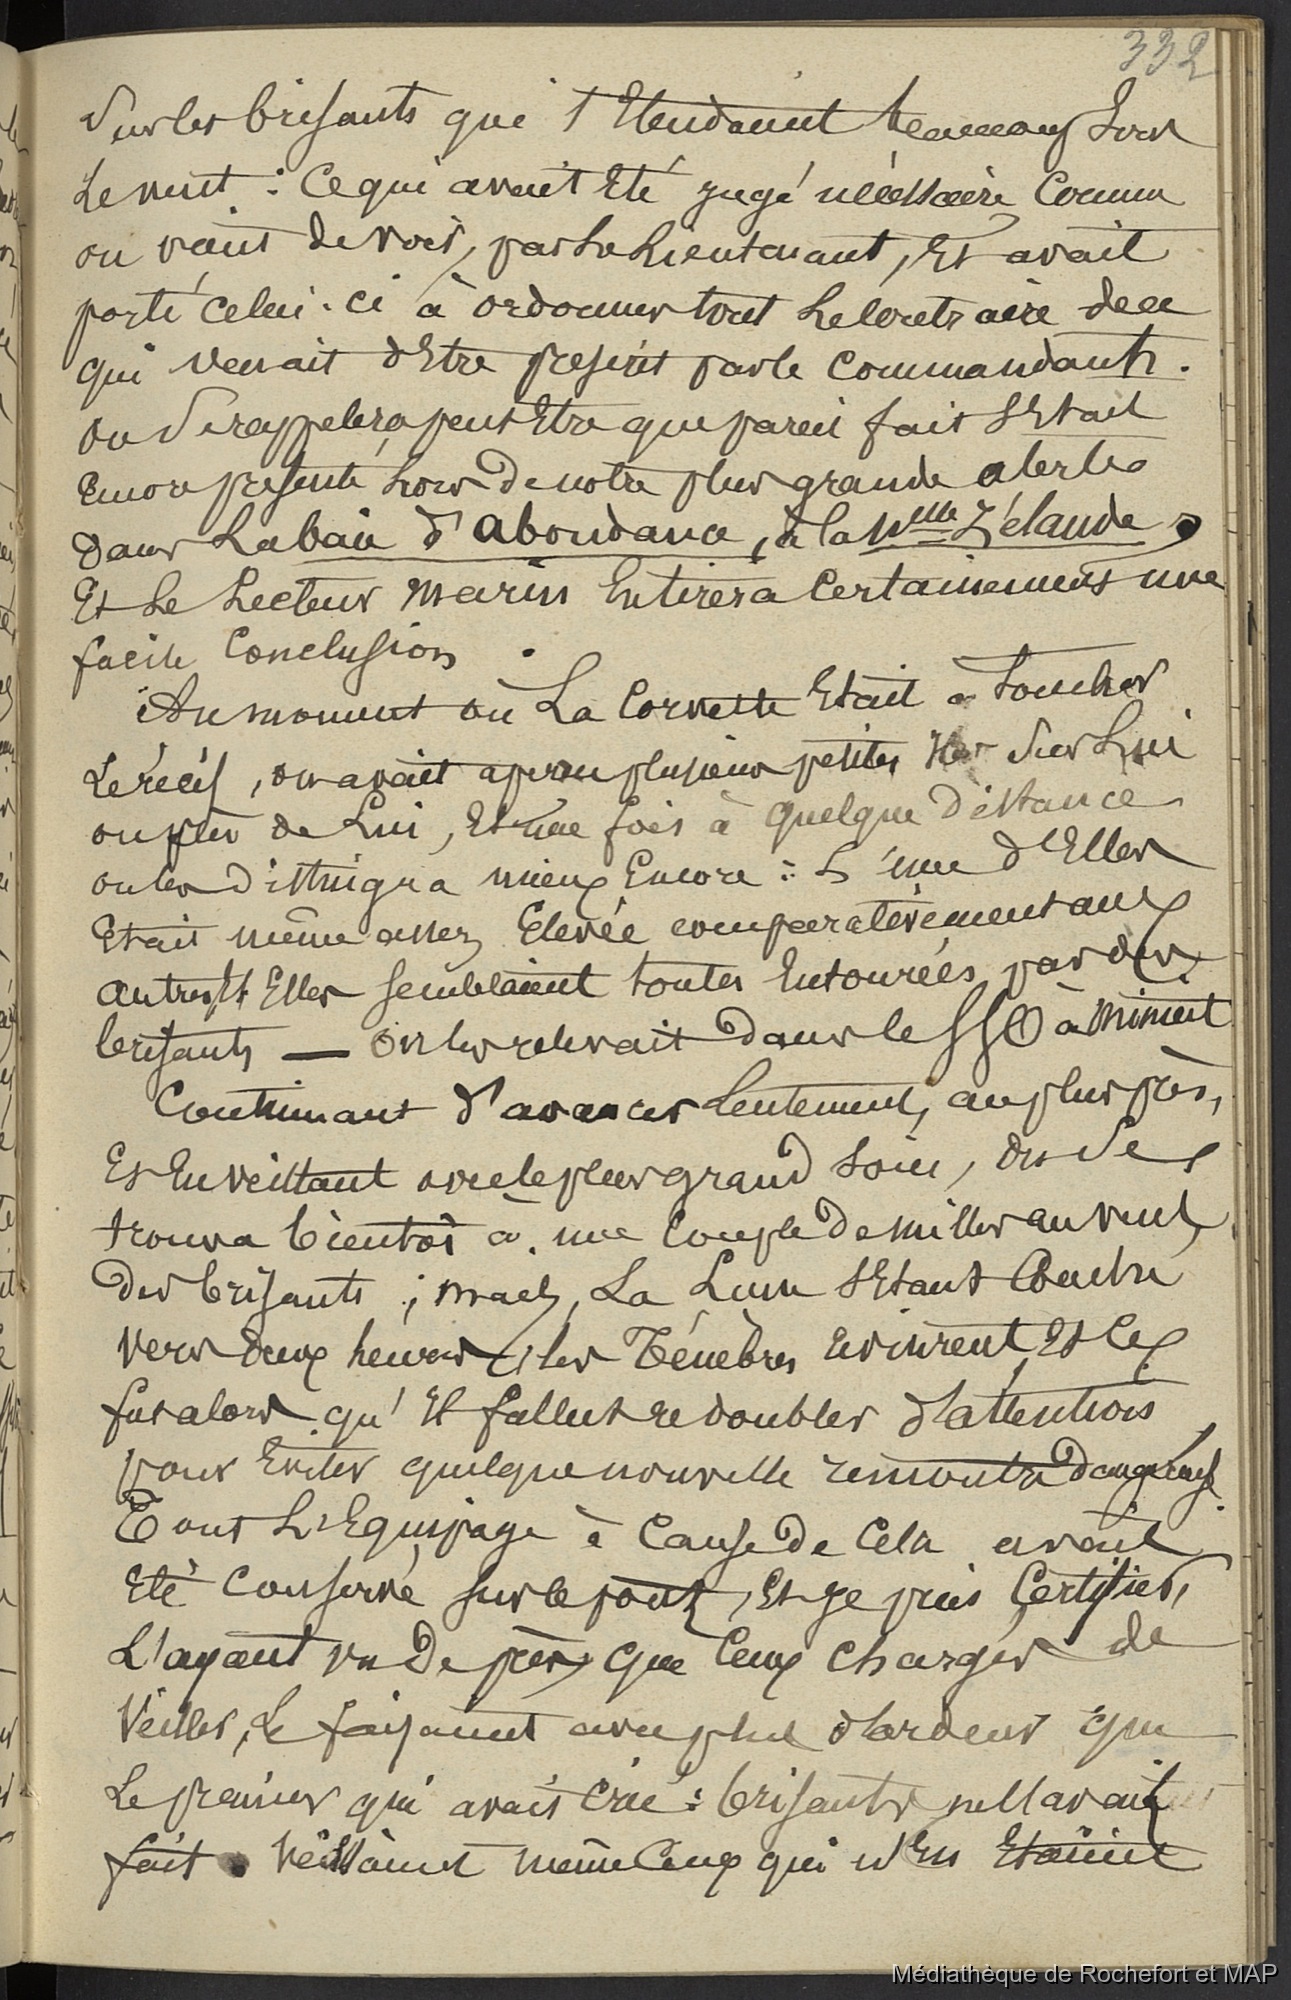 332
Sur les brisants qui s'Etendaient beaucoup sous
Le vent : Ce qui avait Eté jugé nécessaire Comme
on vient de voir, par Le Lieutenant, Et avait
porté Celui-ci à ordonner tout Le Contraire de ce
qui venait d'Etre prescrit par le Commandant.
on Se rappelera peut Etre que pareil fait S'Etait
Encore présenté Lors De notre plus grande alerte
dans La baie d'abondance, à la Nlle Zélande,
Et Le Lecteur marin En tirera Certainement une
facile Conclusion.
Au moment où La Corvette Etait à Toucher
Le récif, on avait aperçu plusieurs petites Iles Sur Lui
ou près de Lui, Et une fois à quelque Distance
on les Distingua mieux Encore : L'une d'Elles
Etait même assez Elevée comparativement aux
autres Et Elles semblaient toutes Entourées par des
brisants — on les relevait Dans le SSO à minuit
Continuant d'avancer Lentement, au plus près,
Et En veillant avec le plus grand Soin, on Se
trouva bientôt à une Couple De milles au vent
Des brisants ; mais, La Lune S'Etant Couchée
vers deux heures, les Ténèbres revinrent, Et Ce
fut alors qu'Il fallut redoubler d'attention
pour Eviter quelque nouvelle rencontre Dangereuse.
Tout L'Equipage à Cause De Cela avait
Eté Conservé sur le pont, Et je puis Certifier,
L'ayant vu De près, que Ceux Chargés de
Veiller, Le faisaient avec plus d'ardeur que
Le premier qui avait Crié : brisants, ne l'avait
fait. Veillaient même Ceux qui n'En Etaient
Médiathèque de Rochefort et MAP